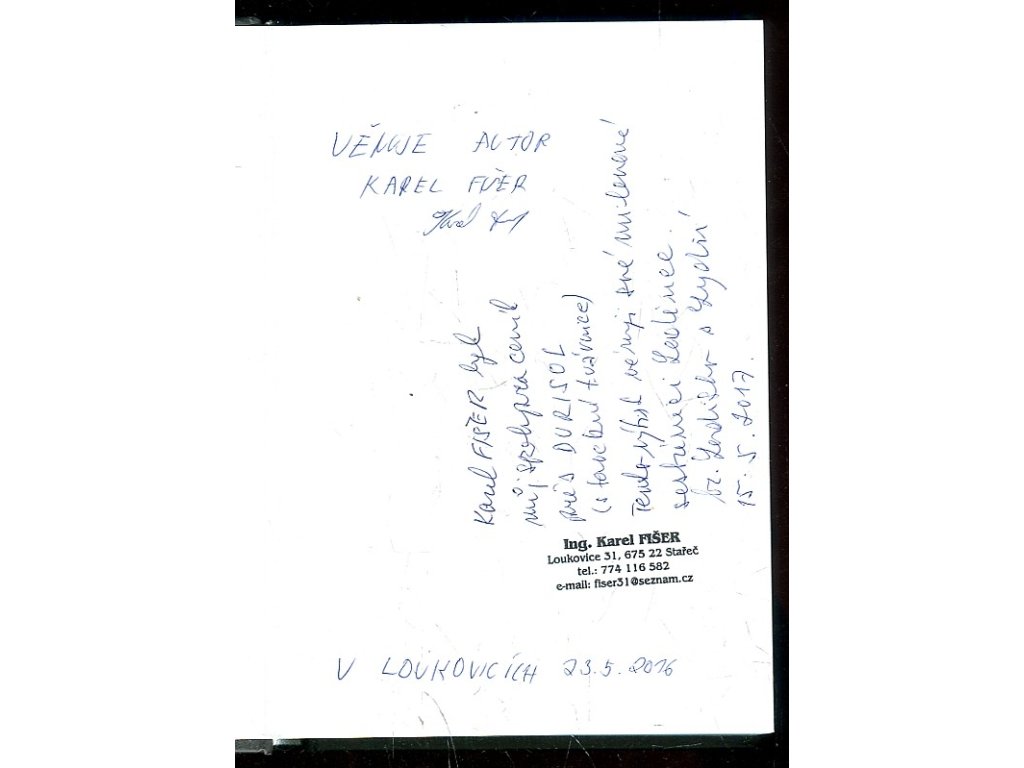 VĚNUJE AUTOR
KAREL FIŠER
Karel FIŠER byl
můj spolupracovník
přes DURISOL
(stavební tvárnice)
Tento výtisk věnuji své milované
sestřenici Laděnce.
br. s Lydií
15. 5. 2017.
Ing. Karel FIŠER
Loukovice 31, 675 22 Stařeč
tel.: 774 116 582
e-mail: fiser31@seznam.cz
V LOUKOVICÍCH 23.5.2016